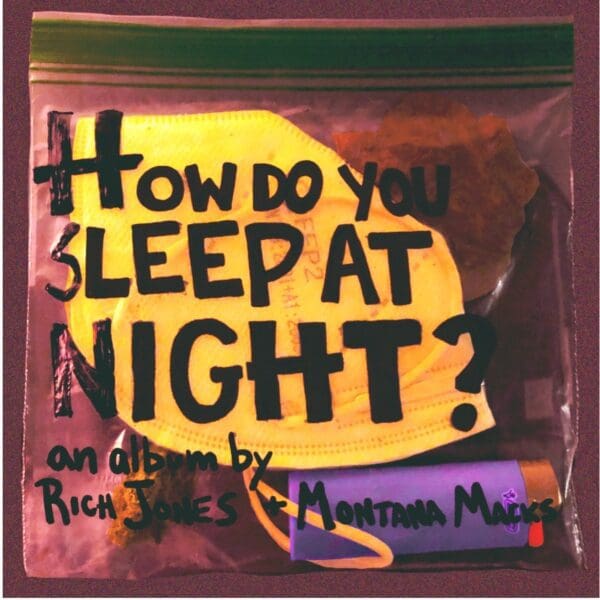 HOW DO YOU
SLEEP AT
NIGHT?
an album by
RICH JONES + MONTANA MACKS
FFP2